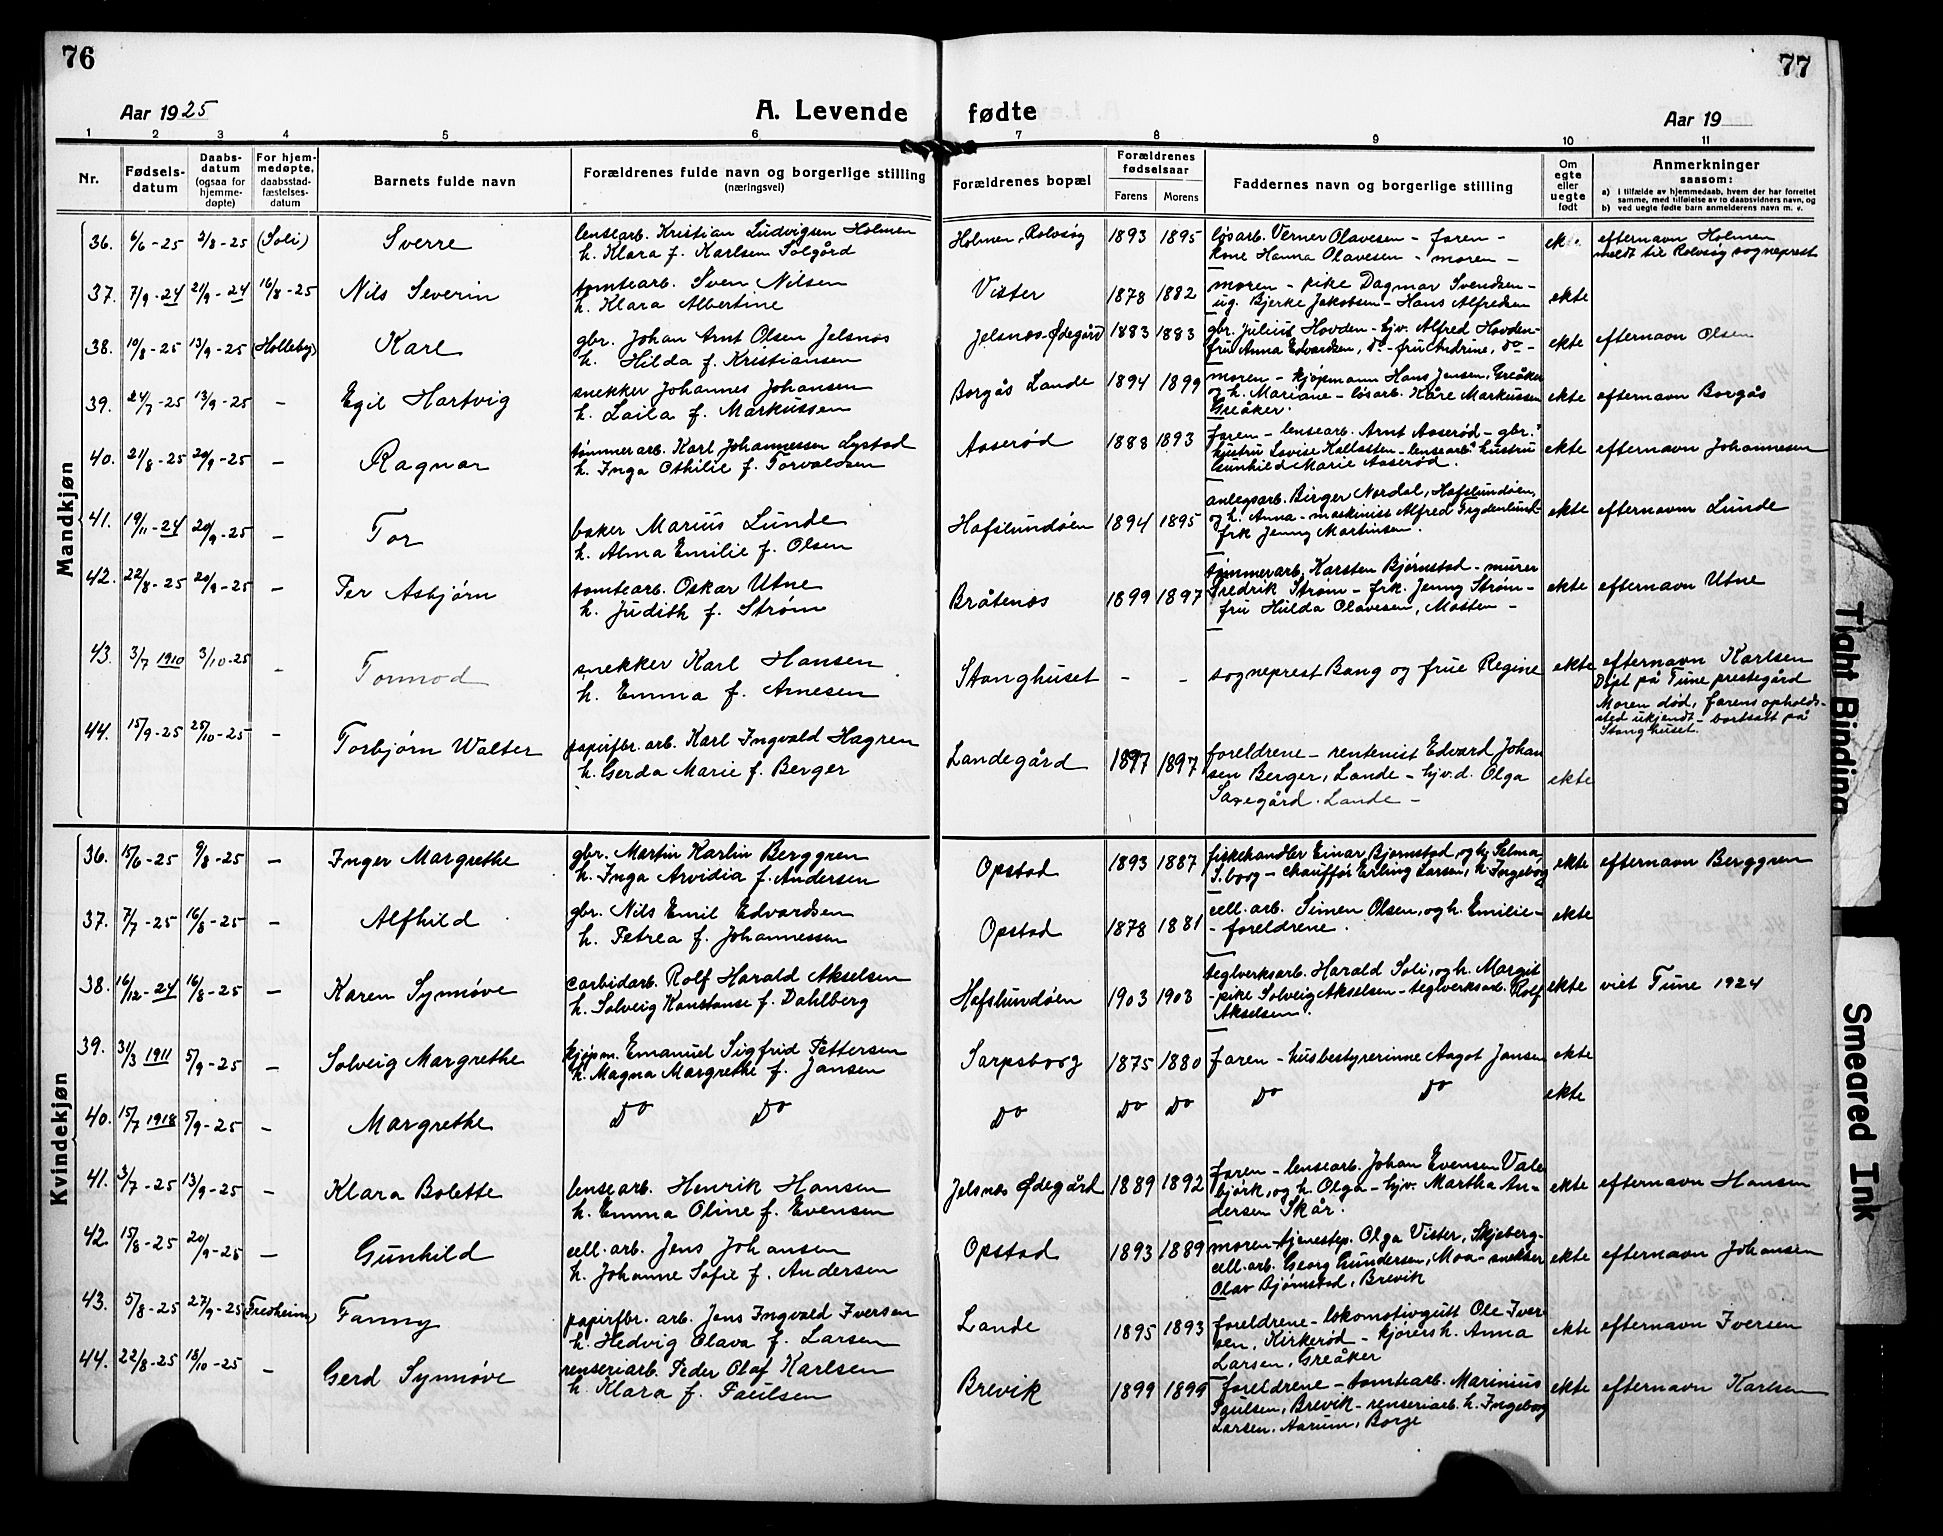 76
77
Aar 1925
A. Levende fødte
Aar 19
1 2 3 4 5 6 7 8 9 10 11
Nr.
Fødsels-
datum
Daabs-
datum
(ogsaa for
hjemme-
døpte)
For hjem-
medøpte,
daabsstad-
fæstelses-
datum
Barnets fulde navn
Forældrenes fulde navn og borgerlige stilling
(næringsvei)
Forældrenes bopæl
Forældrenes
fødselsaar
Farens Morens
Faddernes navn og borgerlige stilling
Om
egte
eller
uegte
født
Anmerkninger
saasom:
a) I tilfælde av hjemmedaab, hvem der har forrettet
samme, med tilføielse av to daabsvidners navn, og
b) ved uegte fødte barn anmelderens navn m. v.
Mandkjøn
36. 6/6-25 2/8-25 (Soli) Sverre
lensearb. Kristian Ludvigsen Holmen
h. Klara f. Karlsen Solgård
Holmen, Rolvsøy 1893 1895
løsarb. Verner Olavesen - faren -
kone Hanna Olavesen - moren -
ekte
efternavn Holmen
meldt til Rolvsøy sogneprest
37. 7/9-24 21/9-24 16/8-25 Nils Severin
tomtearb. Sven Nilsen
h. Klara Albertine
Vister 1878 1882
moren - pike Dagmar Svendsen -
ug. Bjerke Jakobsen - Hans Alfredsen
ekte
38. 10/8-25 13/9-25 (Holleby) Karl
gbr. Johan Arnt Olsen Jelsnes
h. Hilda f. Kristiansen
Jelsnes-Ødegård 1883 1883
gbr. Julius Hovden - hjv. Alfred Hovden -
fru Anna Edvardsen, do - fru Andrine, do -
ekte efternavn Olsen
39. 24/7-25 13/9-25 - Egil Hartvig
snekker Johannes Johansen
h. Laila f. Markussen
Borgås Lande 1894 1899
moren - kjøpmann Hans Jensen, Greåker
og h. Mariane - løsarb. Kåre Markussen
Greåker.
ekte efternavn Borgås
40. 21/8-25 20/9-25 - Ragnar
tømmerarb. Karl Johannessen Lystad
h. Inga Othilie f. Torvaldsen
Aaserød 1888 1893
faren - lensearb. Arnt Aaserød - gbr.s
hustru Lovise Kallatten - lensearb.s hustru
Gunhilde Marie Aaserød.
ekte efternavn Johannesen
41. 19/11-24 20/9-25 - Tor
baker Marius Lunde
h. Alma Emilie f. Olsen
Hafslundøen 1894 1895
anlegsarb. Birger Nordal, Hafslundøen,
og h. Anna - maskinist Alfred Frydenlund -
frk Jenny Martinsen.
ekte efternavn Lunde
42. 22/8-25 20/9-25 - Per Asbjørn
tomtearb. Oskar Utne
h. Judith f. Strøm
Bråtenes 1899 1897
tømmerarb. Karsten Bjørnstad - murer
Fredrik Strøm - frk. Jenny Strøm -
fru Hilda Olavesen, Mosten -
ekte efternavn Utne
43. 3/7 1910 3/10-25 - Tormod
snekker Karl Hansen
h. Emma f. Arnesen
Stanghuset - -
sogneprest Bang og frue Regine
ekte
efternavn Karlsen
Døpt på Tune prestegård
Moren død, farens opholds-
sted ukjendt - bortsatt på
Stanghuset.
44. 15/9-25 25/10-25 - Torbjørn Walter
papirfbr. arb. Karl Ingvald Hagren
h. Gerda Marie f. Berger
Landegård 1897 1897
foreldrene - rentenist Edvard Johan
sen Berger, Lande - hjv.d. Olga
Saxegård. Lande -
ekte
Kvindekjøn
36. 15/6-25 9/8-25 - Inger Margrethe
gbr. Martin Karlin Berggren
h. Inga Arvidia f. Andersen
Opstad 1893 1887
fiskehandler Einar Bjørnstad, og h. Selma,
S.borg - chauffør Erling Larsen, h. Ingeborg
ekte efternavn Berggren
37. 7/7-25 16/8-25 - Alfhild
gbr. Nils Emil Edvardsen
h. Petrea f. Johannessen
Opstad 1878 1881
cell. arb. Simen Olsen, og h. Emilie -
- foreldrene.
ekte
38. 16/12-24 16/8-25 - Karen Synnøve
carbidarb. Rolf Harald Akselsen
h. Solveig Konstanse f. Dahlberg
Hafslundøen 1903 1903
teglverksarb. Harald Soli, og h. Margit
- pike Solveig Akselsen - teglverksarb. Rolf
Akselsen.
ekte viet Tune 1924
39. 31/3 1911 5/9-25 - Solveig Margrethe
kjøpm. Emanuel Sigfrid Pettersen
h. Magna Margrethe f. Jansen
Sarpsborg 1875 1880
faren - husbestyrerinne Aagot Jansen
ekte
40. 15/7 1918 5/9-25 - Margrethe
do do
do do do do do
ekte
41. 3/7-25 13/9-25 - Klara Bolette
lensearb. Henrik Hansen
h. Emma Oline f. Evensen
Jelsnes Ødegård 1889 1892
faren - lensearb. Johan Evensen Vale
bjørk, og h. Olga - hjv. Martha An-
dersen Skår.
ekte efternavn Hansen
42. 15/8-25 20/9-25 - Gunhild
cell. arb. Jens Johansen
h. Johanne Sofie f. Andersen
Opstad 1893 1889
moren - tjenestep. Olga Vister, Skjeberg -
cell. arb. Georg Gundersen, Moa - snekker
Olav Bjørnstad, Brevik
ekte efternavn Johansen
43. 5/8-25 27/9-25 (Fredheim) Fanny
papirfbr. arb. Jens Ingvald Iversen
h. Hedvig Olava f. Larsen
Lande 1895 1893
foreldrene - lokomotivgutt Ole Iver-
sen, Kirkerød - kjørersh. Anna
Larsen, Greåker
ekte efternavn Iversen
44. 22/8-25 18/10-25 - Gerd Synnøve
renseriarb. Peder Olaf Karlsen
h. Klara f. Paulsen
Brevik 1899 1899
foreldrene - tomtearb. Marinius
Paulsen, Brevik - renseriarb. h. Ingeborg
Larsen, Aarum, Borge
ekte efternavn Karlsen
Tight Binding
Smeared Ink